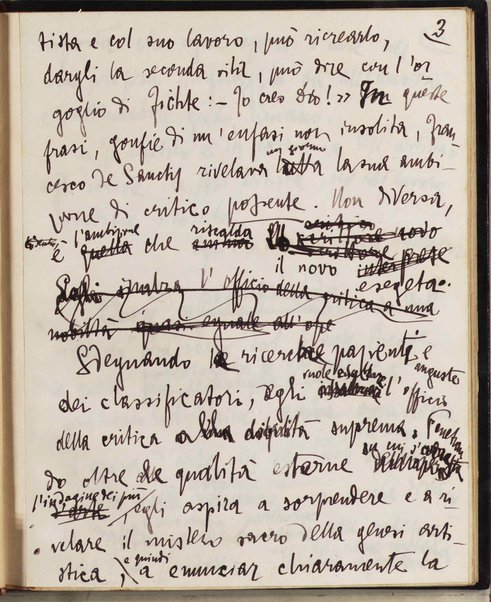 3
tista e col suo lavoro, può ricrearlo,
dargli la seconda vita, può dire con l'or
goglio di Fichte: – Io creo Dio! » In queste
frasi, gonfie di un'enfasi non insolita, Fran
cesco De Sanctis rivelava un giorno la sua ambi-
zione di critico possente. Non diversa,
è l'ambizione che riscalda
il novo esegeta.
Egli innalza l'officio della critica a una
nobiltà quasi eguale all'
Sdegnando le ricerche pazienti e
anguste
dei classificatori, egli vuole l'officio
della critica alla dignità suprema. Penetran
do oltre le qualità esterne su cui s'
l'indagine dei più
egli aspira a sorprendere e a ri-
velare il mistero sacro della genesi arti-
stica, e quindi a enunciar chiaramente la